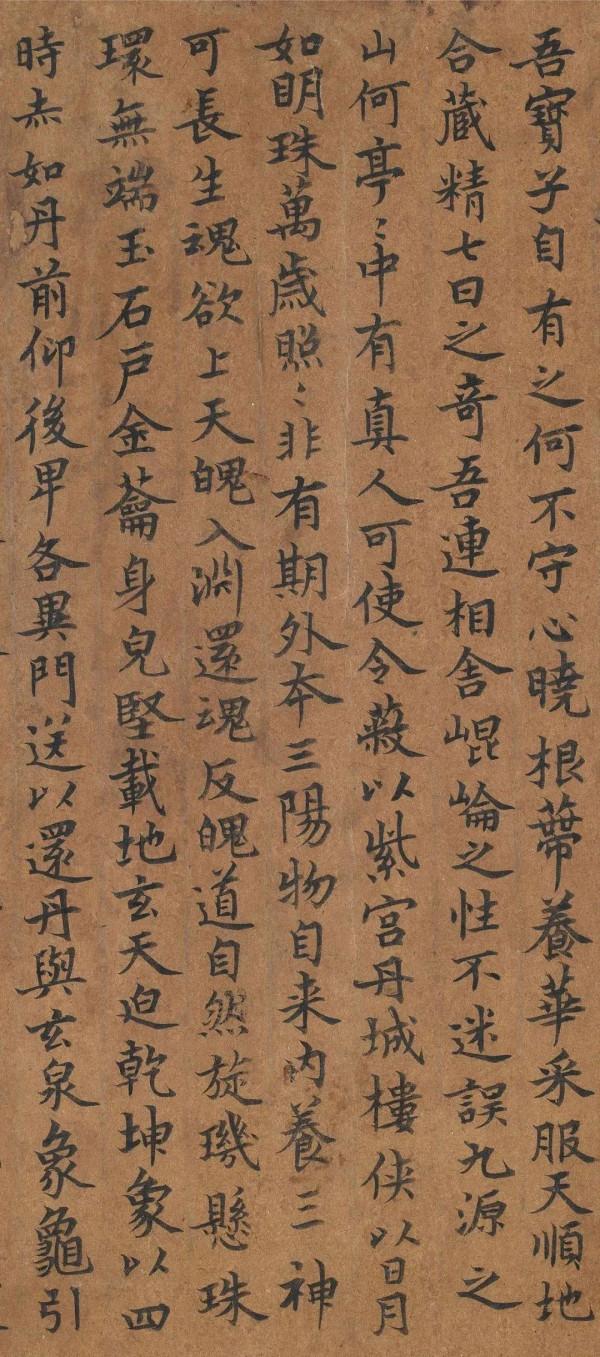 吾寶子自有之何不守心曉根蔕養華采服天順地
合藏精七日之奇吾連相舍崐崘之性不迷誤九源之
山何亭〻中有真人可使令蔽以紫宮丹城樓侠以日月
如明珠萬歲照〻非有期外夲三陽物自来內養三神
可長生魂欲上天魄入淵還魂反魄道自然旋璣懸珠
環無端玉石戸金籥身皃堅載地玄天迫乾坤象以四
時赤如丹前仰後卑各異門送以還丹與玄泉象龜引